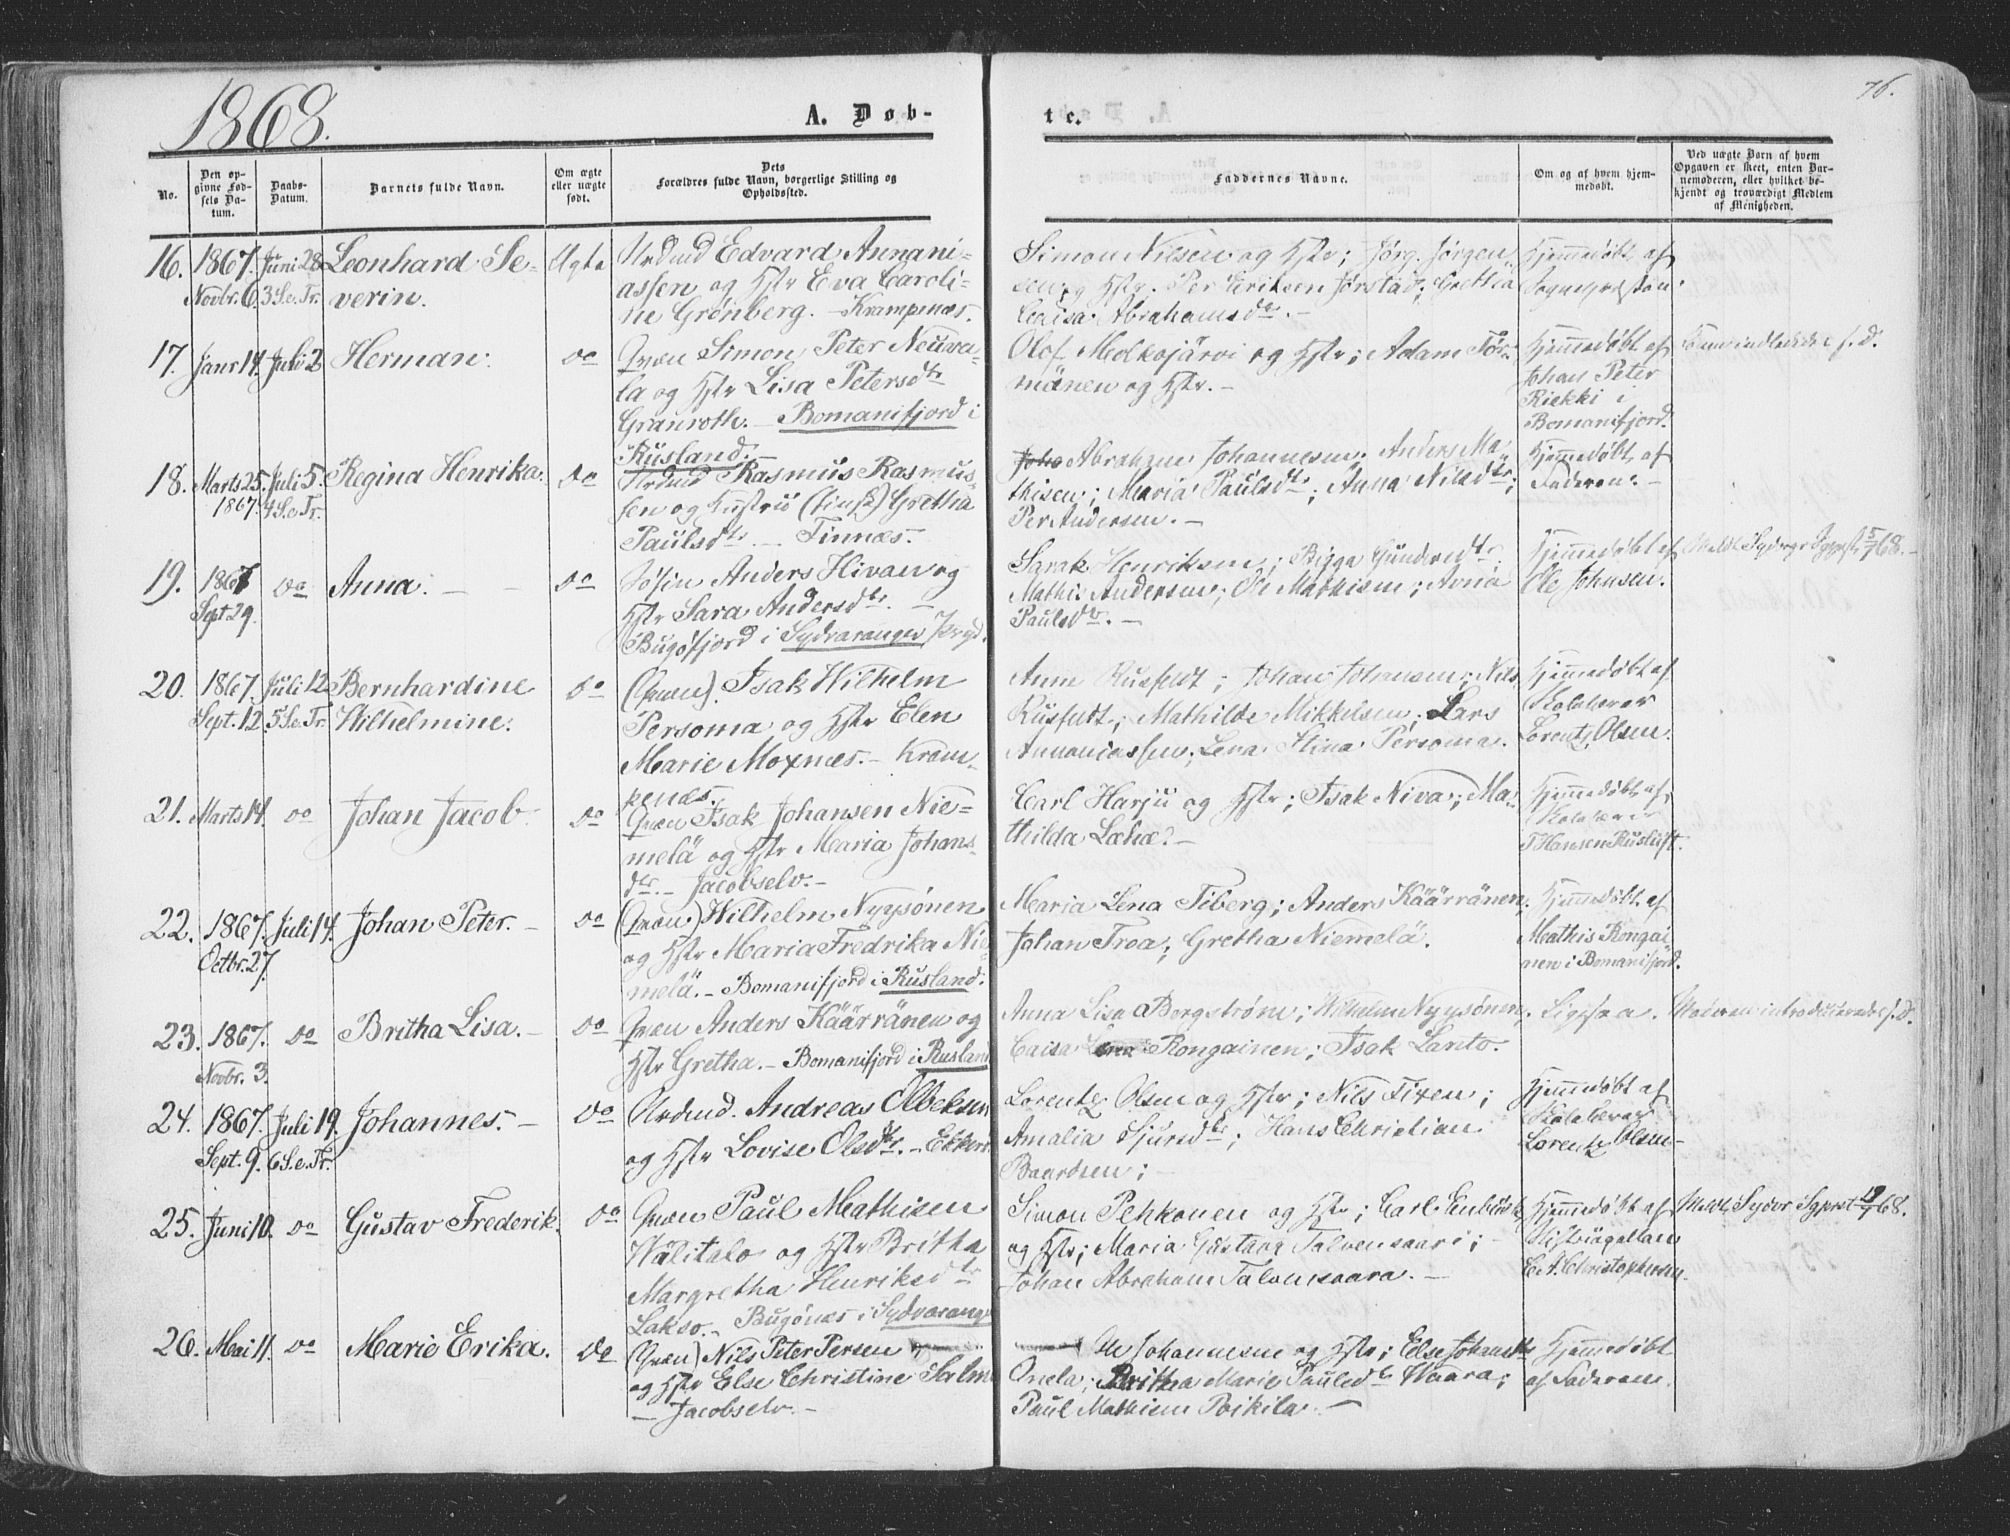 1868.
A. Døb-
te.
76.
No.
Den op-
givne Fød-
sels Da-
tum.
Daabs-
Datum.
Barnets fulde Navn.
Om ægte
eller uægte
født.
Dets
Forældres fulde Navn, borgerlige Stilling og
Opholdssted.
Faddernes Navne.
Om og af hvem hjem-
medøbt.
Ved uægte Børn af hvem
Opgaven er skeet, enten Bar-
nemoderen, eller hvilket be-
kjendt og troværdigt Medlem
af Menigheden.
16. 1867. Juni 28 Leonhard Se- Ægte Nrdmd Edvard Annani-
Novbr. 6. 3 S.e.Tr. verin. assen og Hstr Eva Caroli-
ne Grønberg. - Krampenæs.
Simon Nilsen og Hstr; Jørg. Jørgen-
sen og Hstr. Per Eriksen Jørstad; Grethe
Caisa Abrahamsdr. -
Hjemmedøbt af
Sognepræsten.
17. Janr 14. Juli 2 Herman: do Qvæn Simon Peter Neuva-
la og Hstr Lisa Petersdtr
Granroth. - Bomanifjord i
Rusland. -
Olof Molkojärvi og Hstr; Adam Tør-
mänen og Hstr. -
Hjemmedøbt af
Johan Peter
Riekki i
Bomanifjord.
18. Marts 25. Juli 5. Regina Henrika. do Nrdmd Rasmus Rasmus-
1867. 4 S.e.Tr. sen og Hustru (Finsk) Gretha
Paulsdtr. - Finnæs. -
Joha Abraham Johannesen; Anders Ma-
thisen; Maria Paulsdtr; Anna Nilsdtr;
Per Andersen. -
Hjemmedøbt af
Faderen. -
19. 1867 do Anna. - do Anders Hivan og
Sept 29. Hstr Sara Andersdtr. -
Bugøfjord i Sydvaranger Prgd.
Sarak Henriksen; Bigga Gundersdtr;
Mathis Andersen; Ole Mathisen; Anna
Paulsdtr. -
Hjemmedøbt af
Ole Johnsen.
Meldt Sydvgr Sgprst 5/7 68. -
20. 1867. Juli 12 Bernhardine do (Qvæn). Isak Wilhelm
Sept. 12 5 S.e.Tr. Wilhelmine. Persoma og Hstr Elen
Marie Moxnæs. - Kram-
penæs.
Anne Rusfeldt; Johan Johansen; Nils
Rusfeldt; Mathilde Mikkelsen; Lars
Annaniassen; Lena Stina Persoma.
Hjemmedøbt af
Skolelærer
Lorentz Olsen.
21. Marts 14. do Johan Jacob do Qvæn Isak Johansen Nie-
melä og Hstr Maria Johans-
dtr. - Jacobselv. -
Carl Harju og Hstr; Isak Niva; Ma-
thilda Læhæ? -
Hjemmedøbt af
Skolelærer
T Hansen Rusluft.
22. 1867. Juli 14. Johan Peter. - do (Qvæn) Wilhelm Nyysønen
Octbr. 27. og Hstr Maria Fredrika Nie-
melä. - Bomanifjord i Rusland.
Maria Lena Fiberg; Anders Käärränen;
Johan Troa; Gretha Niemelä.
Hjemmedøbt af
Mathis Rongai-
nen i Bomanifjord.
23. 1867. do Britha Lisa. - do Qvæn Anders Käärränen og
Novbr. 3. Hstr Gretha. - Bomanifjord i Rusland
Anna Lisa Bergstrøm; Wilhelm Nyysønen;
Caisa Rongainen; Isak Lanto.
Ligesaa.
Moderen introduceredes s. D.
24. 1867. Juli 19. Johannes. - do Nrdmd. Andreas Olbeksen
Sept. 9. 6 S.e.Tr. og Hstr Lovise Olsdtr. - Ekkerø
Lorentz Olsen og Hstr; Nils Fixen;
Amalia Sjursdtr; Hans Christian
Baardsen; -
Hjemmedøbt af
Skolelærer
Lorentz Olsen -
25. Juni 10. do Gustav Frederik. do Qvæn Paul Mathisen
Wälitalo og Hstr Britha
Margretha Henriksdtr
Lakso. - Bugønæs i Sydvaranger
Simon Pehkonen og Hstr; Carl Enbusk
og Hstr; Maria Gustava Talvensaari; -
Johan Abraham Talvensaara. -
Hjemmedøbt af
C. A. Christophersen.
Meldt Sydvr Sgprst 19/7 68.
26. Mai 11. do Marie Erika. do (Qvæn) Nils Peter Persen
og Hstr Else Christine Salmi
- Jacobselv. -
Ole Johannesen og Hstr; Else Johansdtr
Onela; Britha Marie Paulsdtr Waara;
Paul Mathisen Poikila. -
Hjemmedøbt
af Faderen.